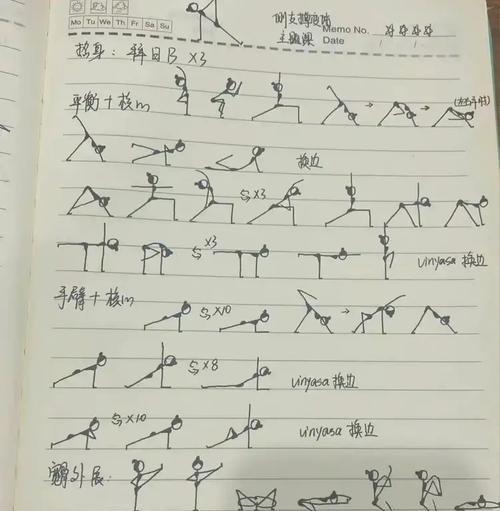 Mo Tu We Th Fr Sa Su
侧支撑
主题课
Memo No.
Date / /
热身: 拜日B ×3
平衡+核m
换边
×3
×3
vinyasa 换边
手臂+核m
×10
×8
vinyasa 换边
×10
vinyasa 换边
髋外展: